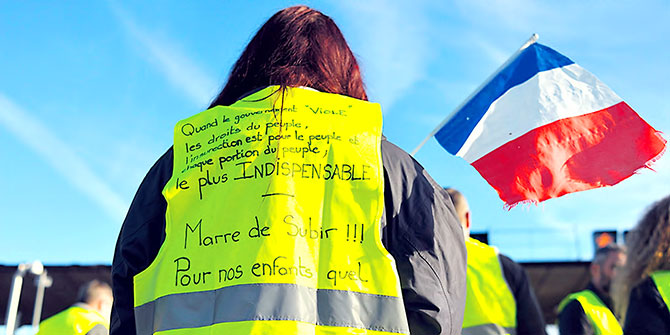 Quand le gouvernement "VIOLE"
les droits du peuple,
l'insurrection est pour le peuple et
chaque portion du peuple,
le plus INDISPENSABLE
Marre de Subir !!!
Pour nos enfants quel